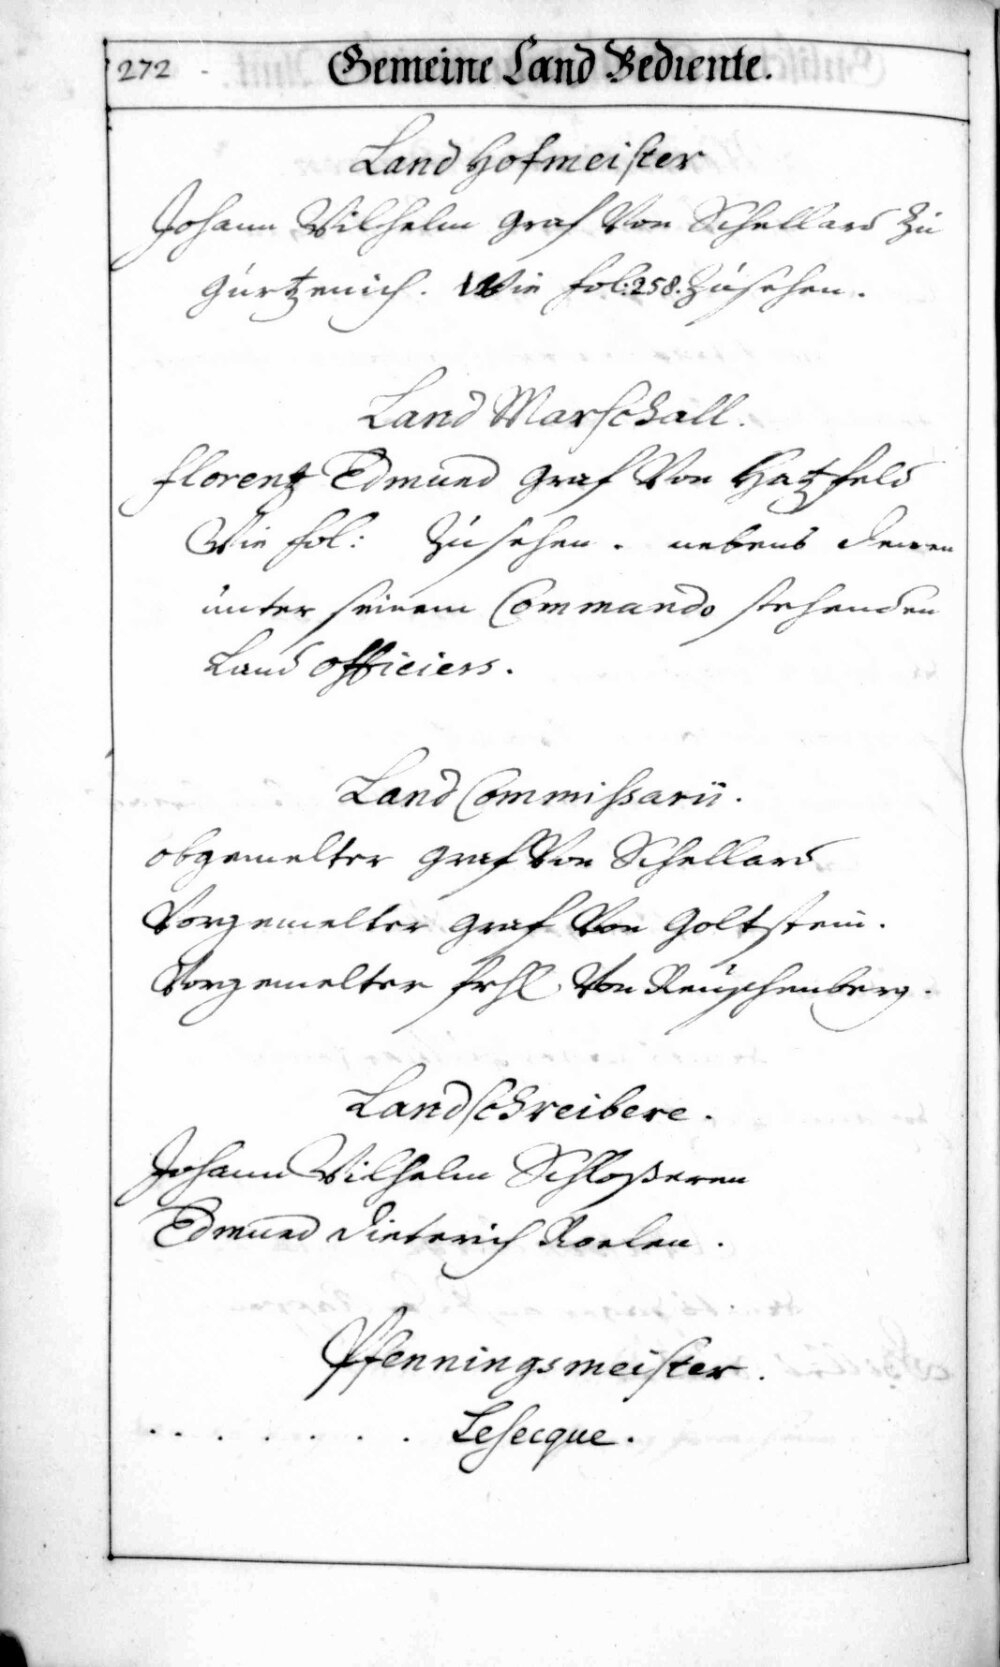 272
Gemeine Land Bediente.
Land Hofmeister
Johann Wilhelm Graf Von Schellard Zu
Gürtzenich. Wie fol: 258. Zusehen.
Land Marschall.
Florentz Edmund Graf Von Hatzfeld
Wie fol: Zusehen. nebens denen
unter seinem Commando stehenden
Land Officiers.
Land Commissarii.
obgemelter Graf Von Schellard
Vorgemelter Graf Von Goltstein.
Vorgemelter frhl. Von Reuschenberg.
Landschreibere.
Johann Wilhelm Schloßeren
Edmund Dieterich Roelen.
Pfenningsmeister.
. . . . . . . Lesecque.